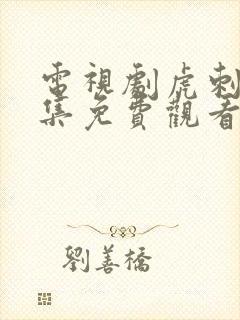 電視劇虎刺
集免費觀看
劉善橋